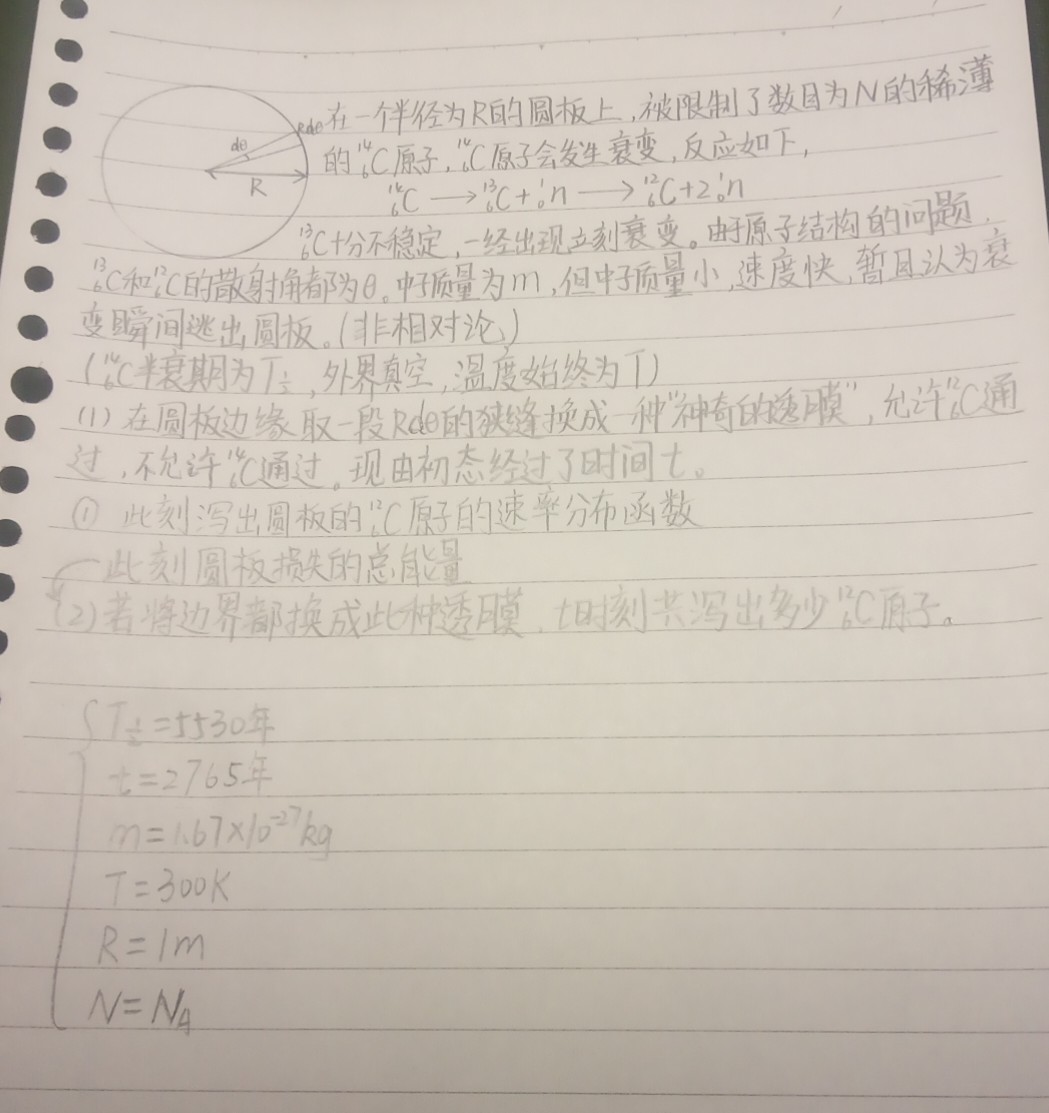 在一个半径为R的圆板上,被限制了数目为N的稀薄
Rdθ
dθ
R
的¹⁴₆C原子,¹⁴₆C原子会发生衰变,反应如下,
¹⁴₆C → ¹³₆C + ¹₀n → ¹²₆C + 2¹₀n
¹³₆C十分不稳定,一经出现立刻衰变。由于原子结构的问题,
¹³₆C和¹²₆C的散射角都为θ。中子质量为m,但中子质量小,速度快,暂且认为衰
变瞬间逃出圆板。(非相对论)
(¹⁴₆C半衰期为T½,外界真空,温度始终为T)
(1)在圆板边缘取一段Rdθ的狭缝换成一种"神奇的透膜",允许¹²₆C通
过,不允许¹⁴₆C通过。现由初态经过了时间t。
① 此刻泻出圆板的¹²₆C原子的速率分布函数
此刻圆板损失的总能量
(2)若将边界都换成此种透膜,t时刻共泻出多少¹²₆C原子。
T½=5530年
t=2765年
m=1.67×10⁻²⁷kg
T=300K
R=1m
N=N_A